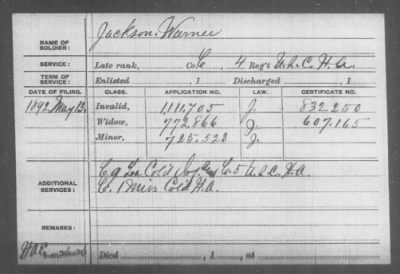 NAME OF SOLDIER: Jackson, Warner
SERVICE: Late rank, Co. C, 4 Reg't U.S.C.H.A.
TERM OF SERVICE: Enlisted , 1 Discharged , 1
DATE OF FILING. CLASS. APPLICATION NO. LAW. CERTIFICATE NO.
1892 May 13 Invalid, 1,111,705 J. 832.250
Widow, 772.866 J. 607.165
Minor, 725.523
ADDITIONAL SERVICES: C 9 Cold C. 5 U.S.C.H.A.
C. 1 Cold H.A.
REMARKS:
Died , 1 , at